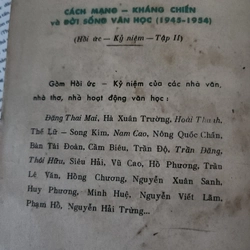 CÁCH MẠNG – KHÁNG CHIẾN
và ĐỜI SỐNG VĂN HỌC (1945-1954)
(Hồi ức – Kỷ niệm – Tập II)
Gồm Hồi ức – Kỷ niệm của các nhà văn,
nhà thơ, nhà hoạt động văn học :
Đặng Thai Mai, Hà Xuân Trường, Hoài Thanh,
Thế Lữ – Song Kim, Nam Cao, Nông Quốc Chấn,
Bàn Tài Đoàn, Cầm Biêu, Trần Độ, Trần Đăng,
Thôi Hữu, Siêu Hải, Vũ Cao, Hồ Phương, Trần
Lê Văn, Hồng Chương, Nguyễn Xuân Sanh,
Huy Phương, Minh Huệ, Nguyễn Viết Lãm,
Phạm Hổ, Nguyễn Hải Trừng...